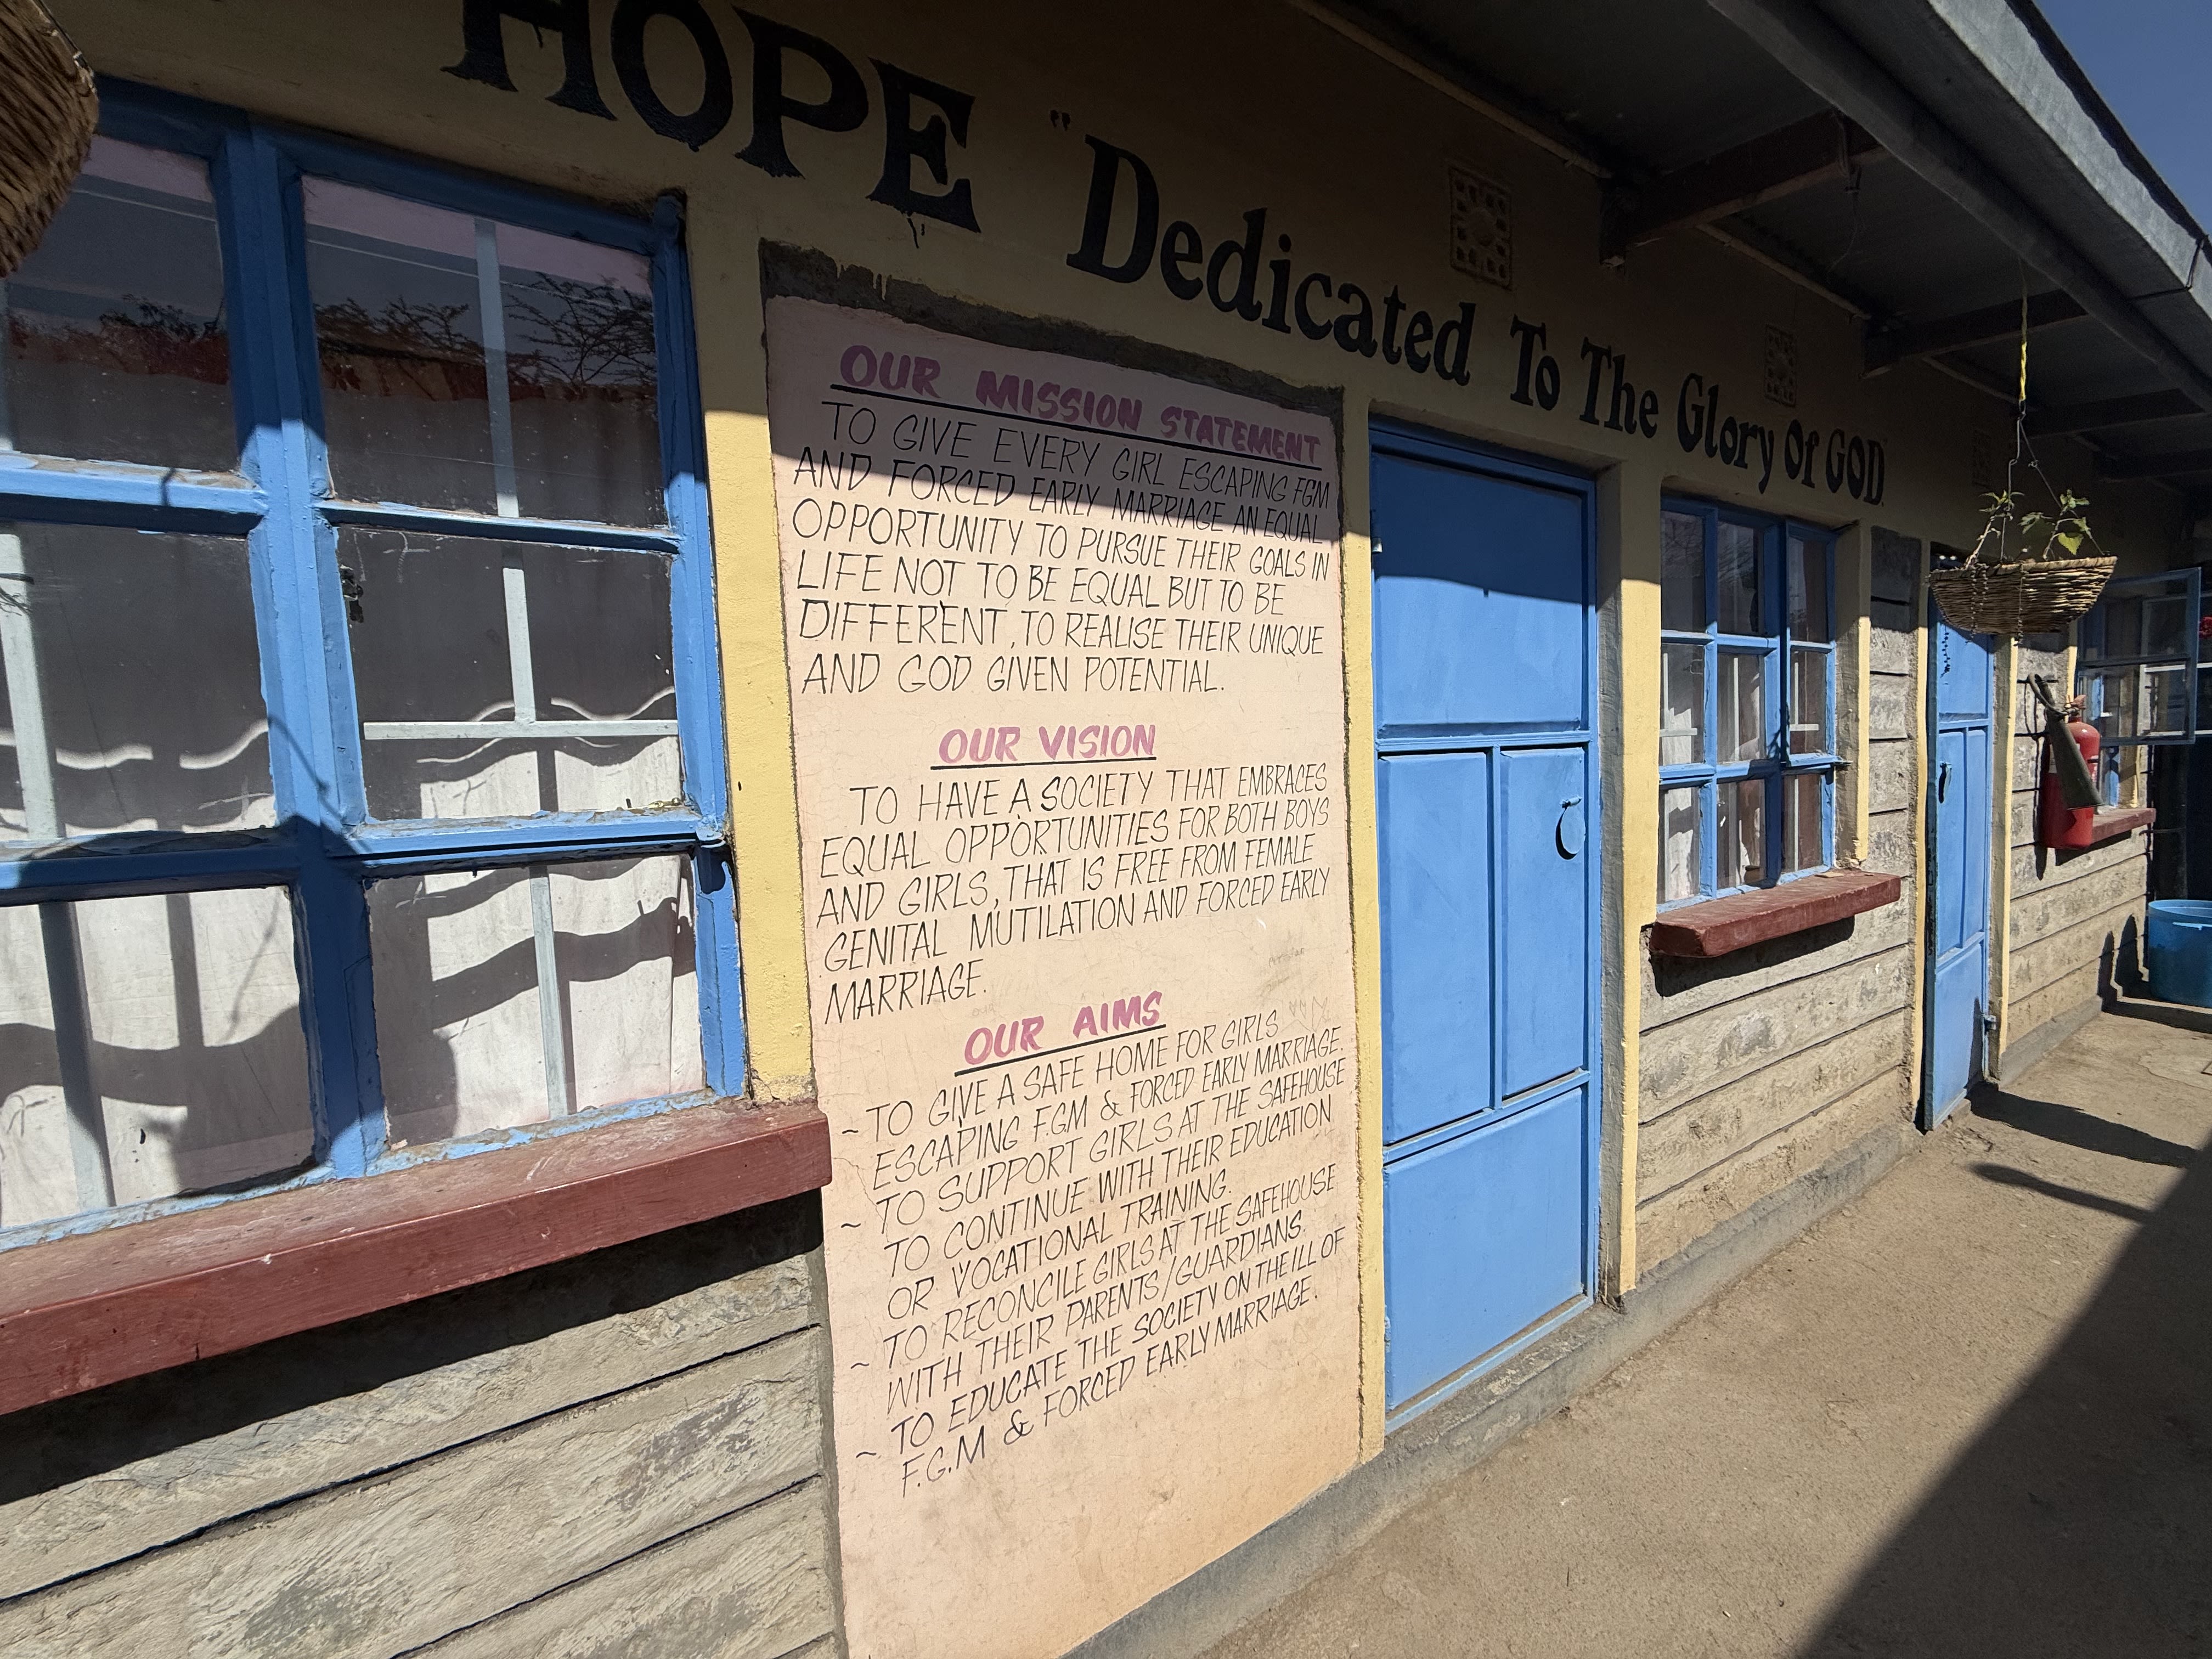 HOPE "Dedicated To The Glory Of GOD"
OUR MISSION STATEMENT
TO GIVE EVERY GIRL ESCAPING FGM
AND FORCED EARLY MARRIAGE AN EQUAL
OPPORTUNITY TO PURSUE THEIR GOALS IN
LIFE NOT TO BE EQUAL BUT TO BE
DIFFERENT, TO REALISE THEIR UNIQUE
AND GOD GIVEN POTENTIAL.
OUR VISION
TO HAVE A SOCIETY THAT EMBRACES
EQUAL OPPORTUNITIES FOR BOTH BOYS
AND GIRLS, THAT IS FREE FROM FEMALE
GENITAL MUTILATION AND FORCED EARLY
MARRIAGE.
OUR AIMS
~ TO GIVE A SAFE HOME FOR GIRLS
ESCAPING F.G.M & FORCED EARLY MARRIAGE.
~ TO SUPPORT GIRLS AT THE SAFEHOUSE
TO CONTINUE WITH THEIR EDUCATION
OR VOCATIONAL TRAINING.
~ TO RECONCILE GIRLS AT THE SAFEHOUSE
WITH THEIR PARENTS/GUARDIANS.
~ TO EDUCATE THE SOCIETY ON THE ILL OF
F.G.M & FORCED EARLY MARRIAGE.